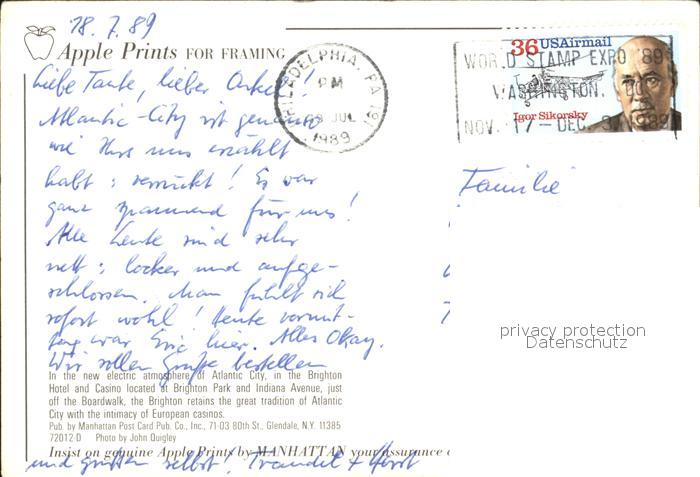 18.7.89
Apple Prints FOR FRAMING
Liebe Tante, lieber Onkel!
Atlantic-City ist genauso
wie Ihr's uns erzählt
habt: verrückt! Es war
ganz spannend für uns!
Alle Leute sind sehr
nett: locker und aufge-
schlossen. Man fühlt sich
sofort wohl! Heute vormit-
tag war Eric hier. Alles Okay.
Wir sollen Grüße bestellen
In the new electric atmosphere of Atlantic City, in the Brighton
Hotel and Casino located at Brighton Park and Indiana Avenue, just
off the Boardwalk, the Brighton retains the great tradition of Atlantic
City with the intimacy of European casinos.
Pub. by Manhattan Post Card Pub. Co., Inc., 71-03 80th St., Glendale, N.Y. 11385
72012-D Photo by John Quigley
Insist on genuine Apple Prints by MANHATTAN your assurance
und grüßen selbst! Traudel + Horst
PHILADELPHIA, PA 191
PM
JUL
1989
36 USAirmail
Igor Sikorsky
WORLD STAMP EXPO '89
WASHINGTON, DC
NOV. 17 - DEC. 3, 1989
Familie
privacy protection
Datenschutz